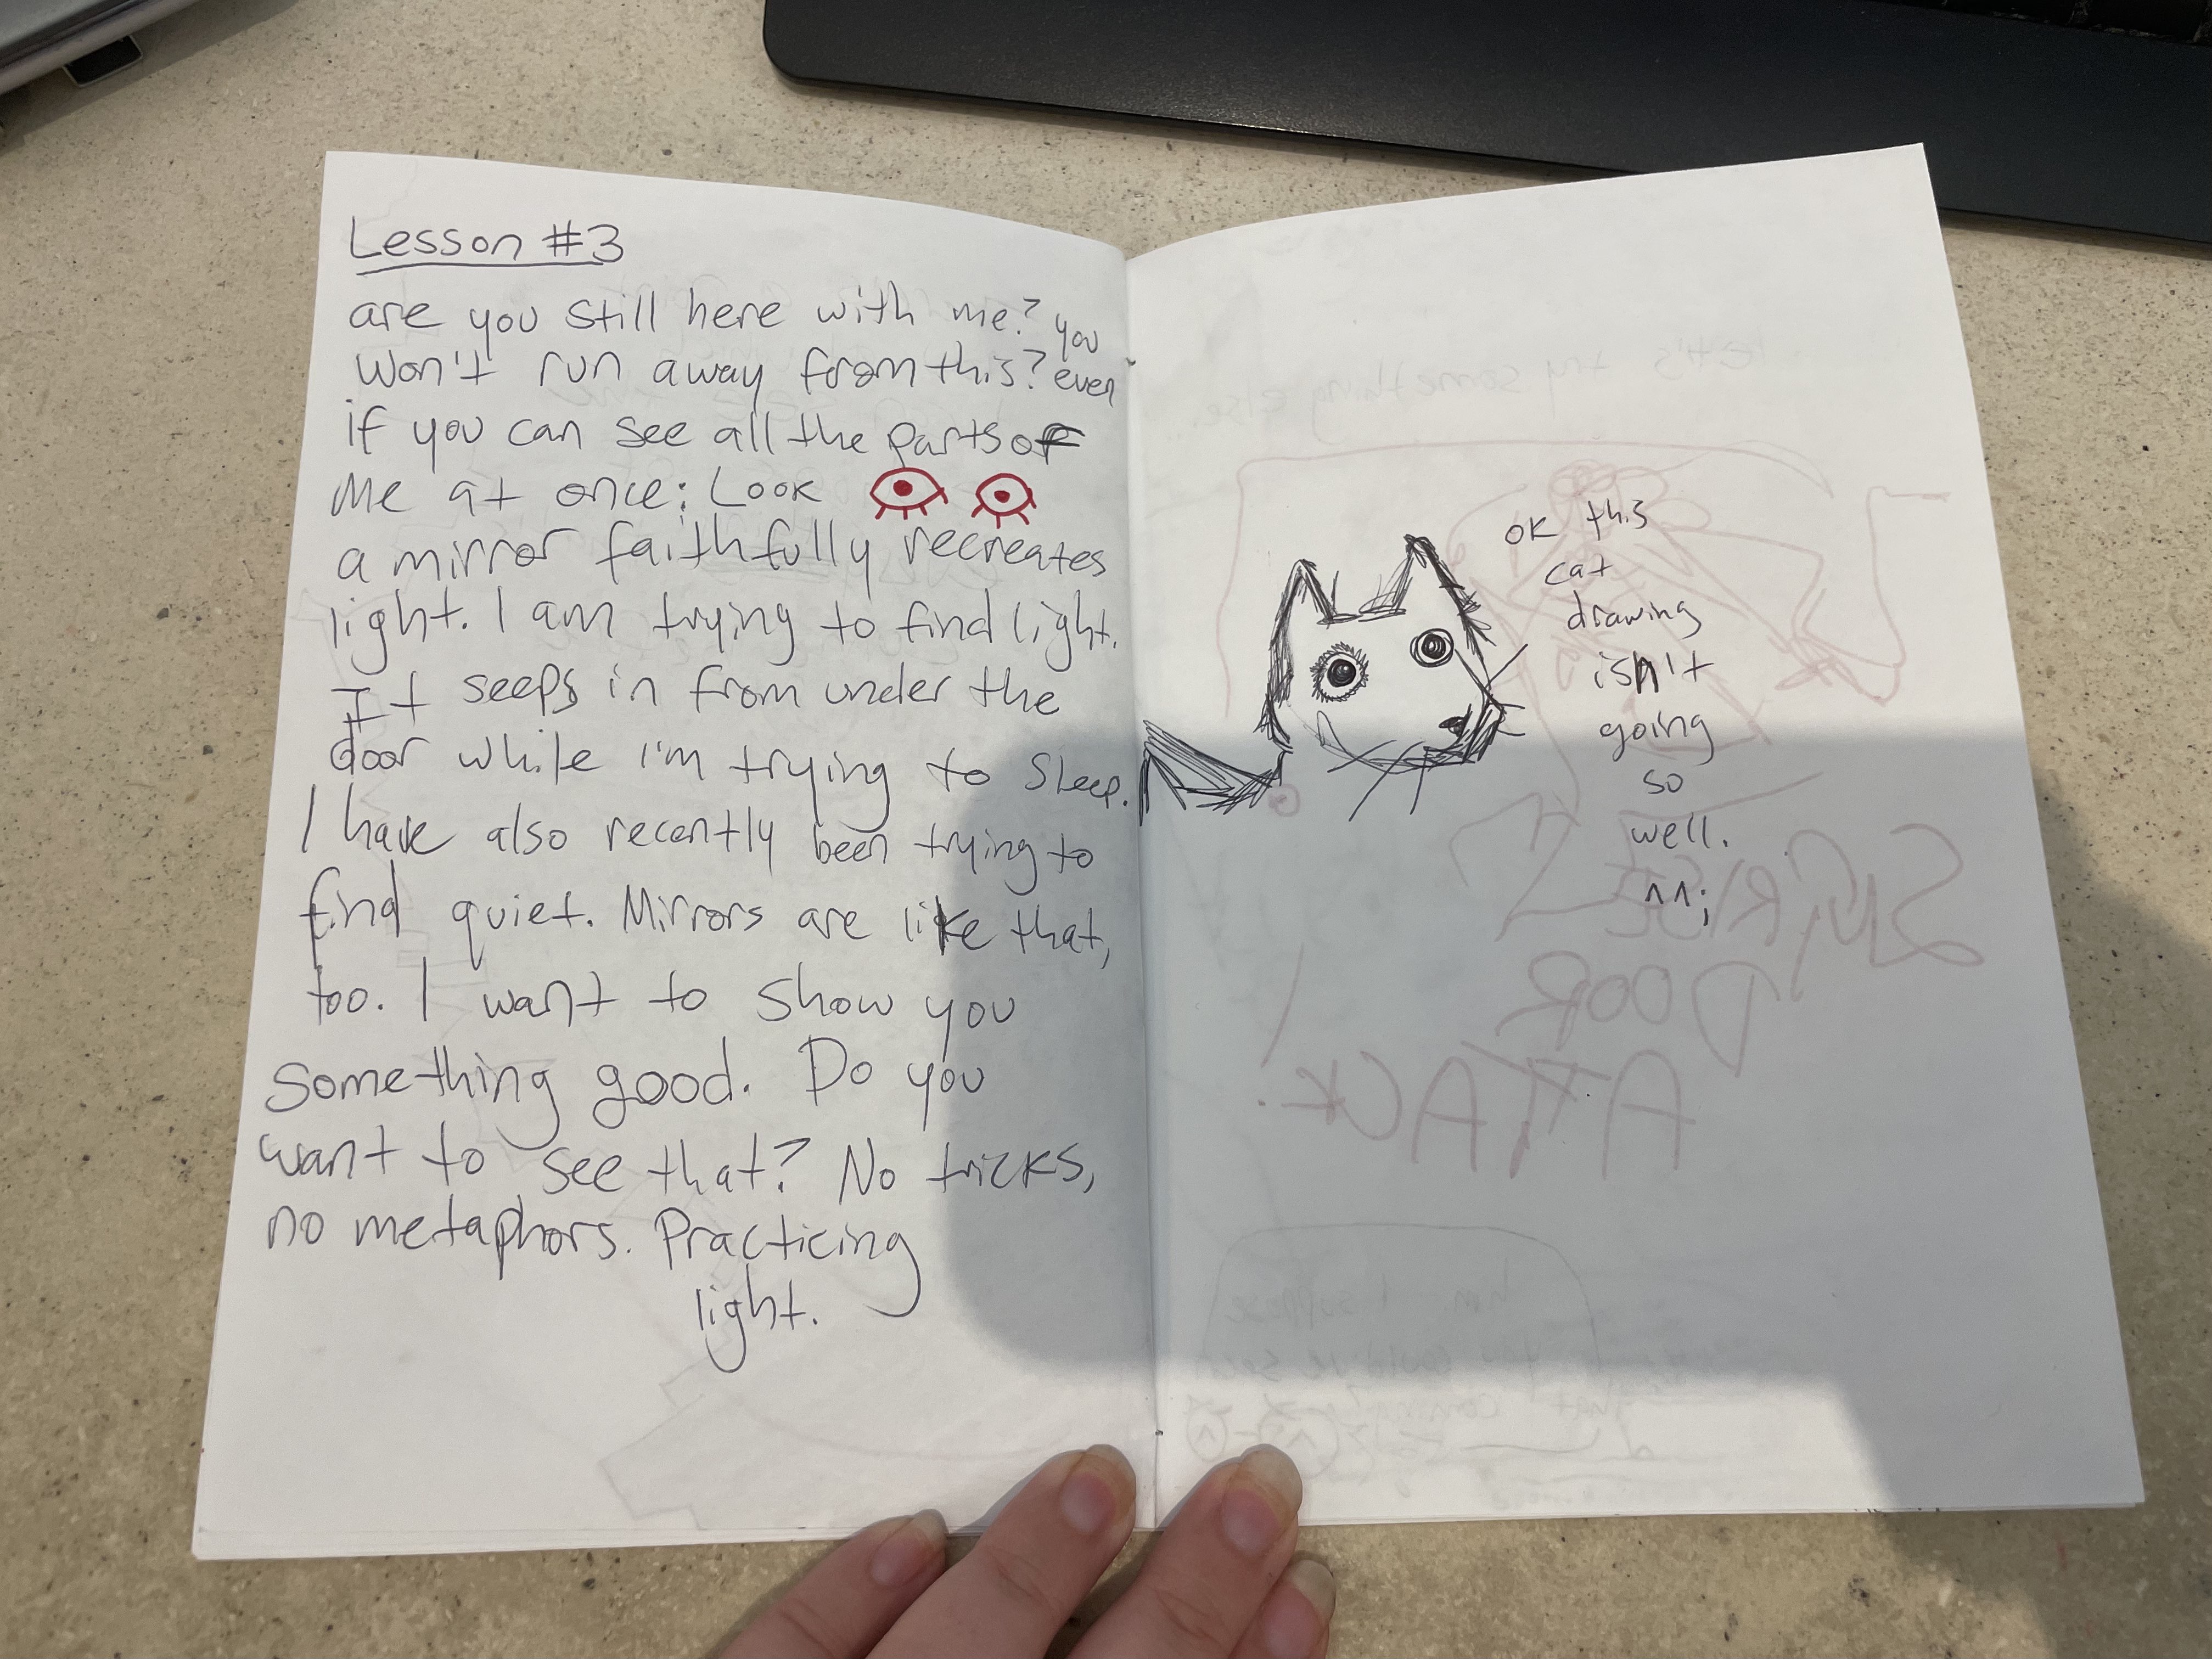 Lesson #3
are you still here with me? you
won't run away from this? even
if you can see all the parts of
me at once: Look
a mirror faithfully recreates
light. I am trying to find light.
It seeps in from under the
door while I'm trying to sleep.
I have also recently been trying to
find quiet. Mirrors are like that,
too. I want to show you
something good. Do you
want to see that? No tricks,
no metaphors. Practicing
light.
let's try something else.
ok this
cat
drawing
isn't
going
so
well.
^^;
SURPRISE
DOOR
ATTACK
hm. I suppose